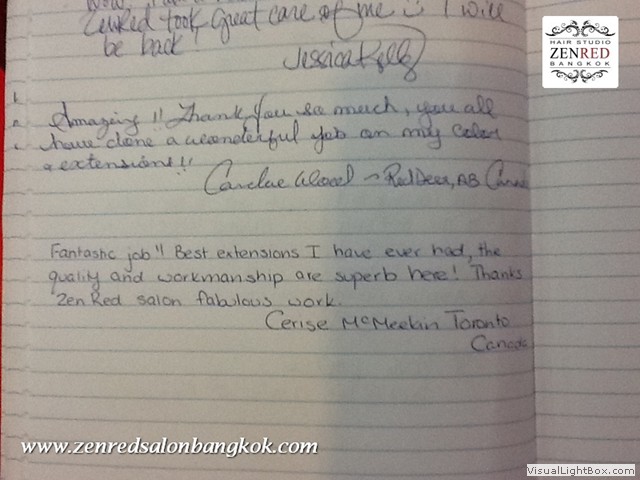 Zenred took great care of me I will
be back!
Jessica Kelly
HAIR STUDIO
ZENRED
BANGKOK
Amazing!! Thank you so much, you all
have done a wonderful job on my color
& extensions!!
Red Deer, AB
Fantastic job!! Best extensions I have ever had, the
quality and workmanship are superb here! Thanks
Zen Red salon fabulous work.
Cerise McMeekin Toronto
Canada
www.zenredsalonbangkok.com
VisualLightBox.com